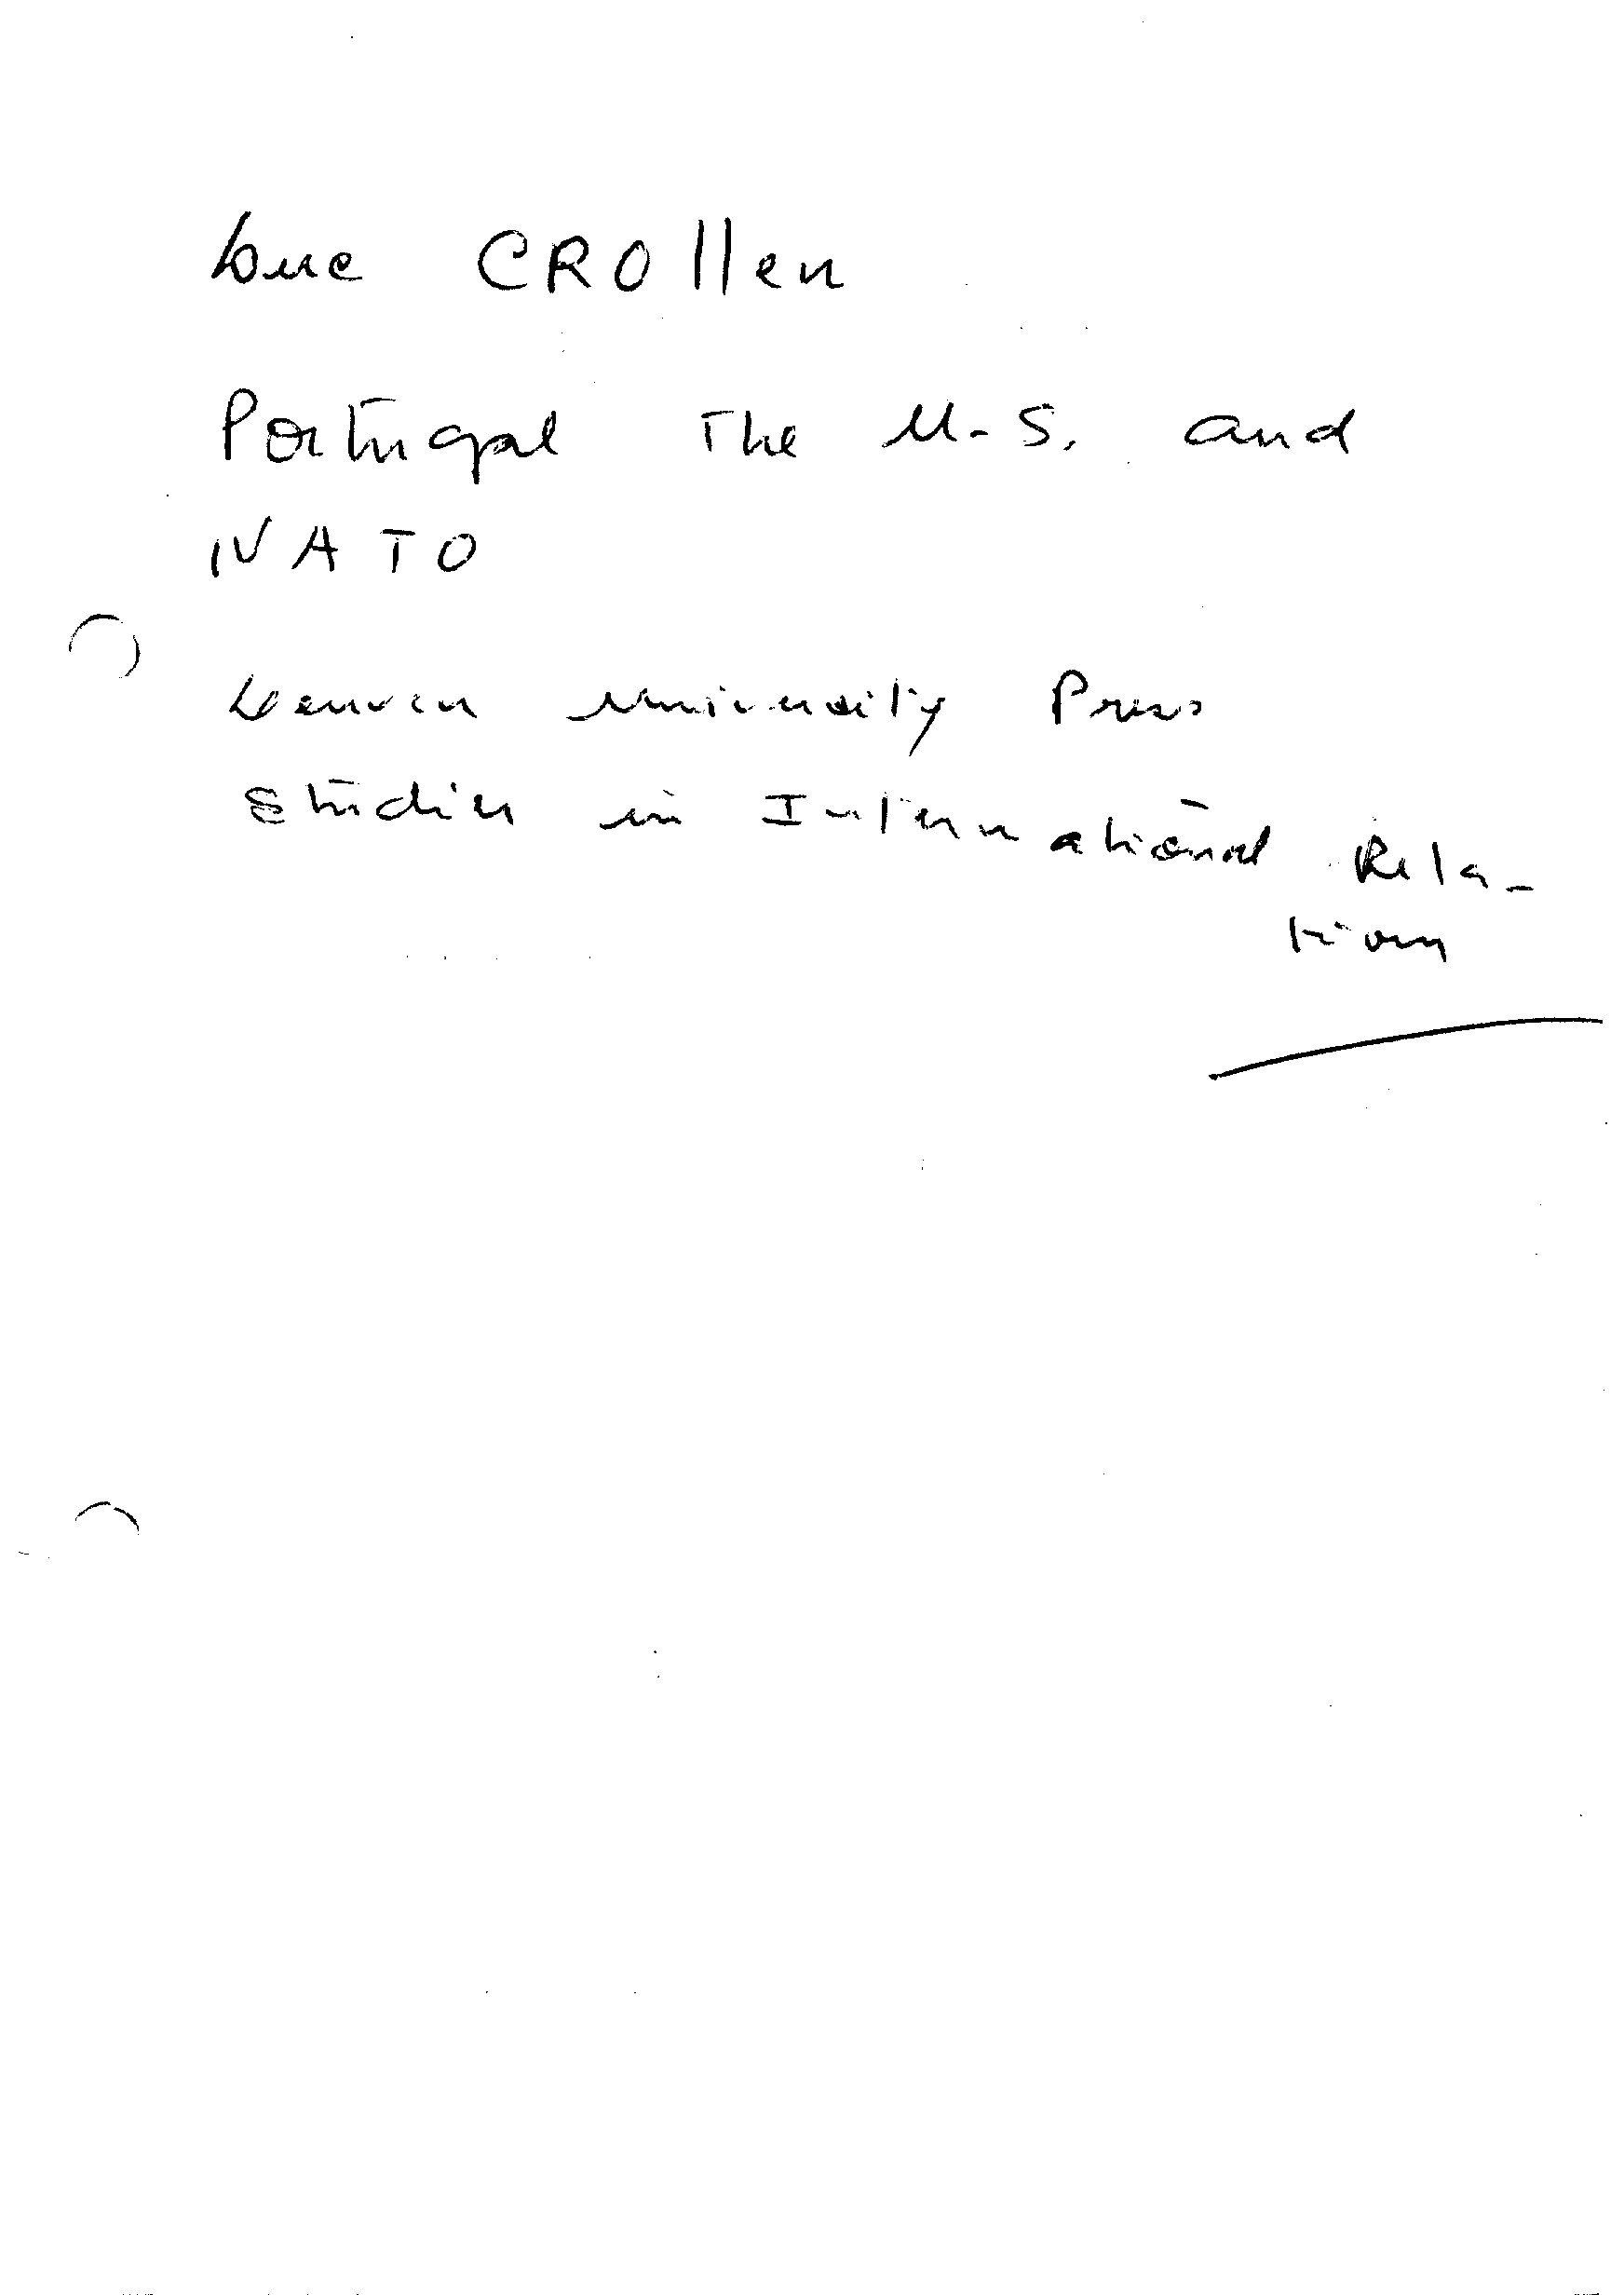 Luc CROllen
Portugal The U.S. and
NATO
Leuven University Press
Studies in International Rela-
tions